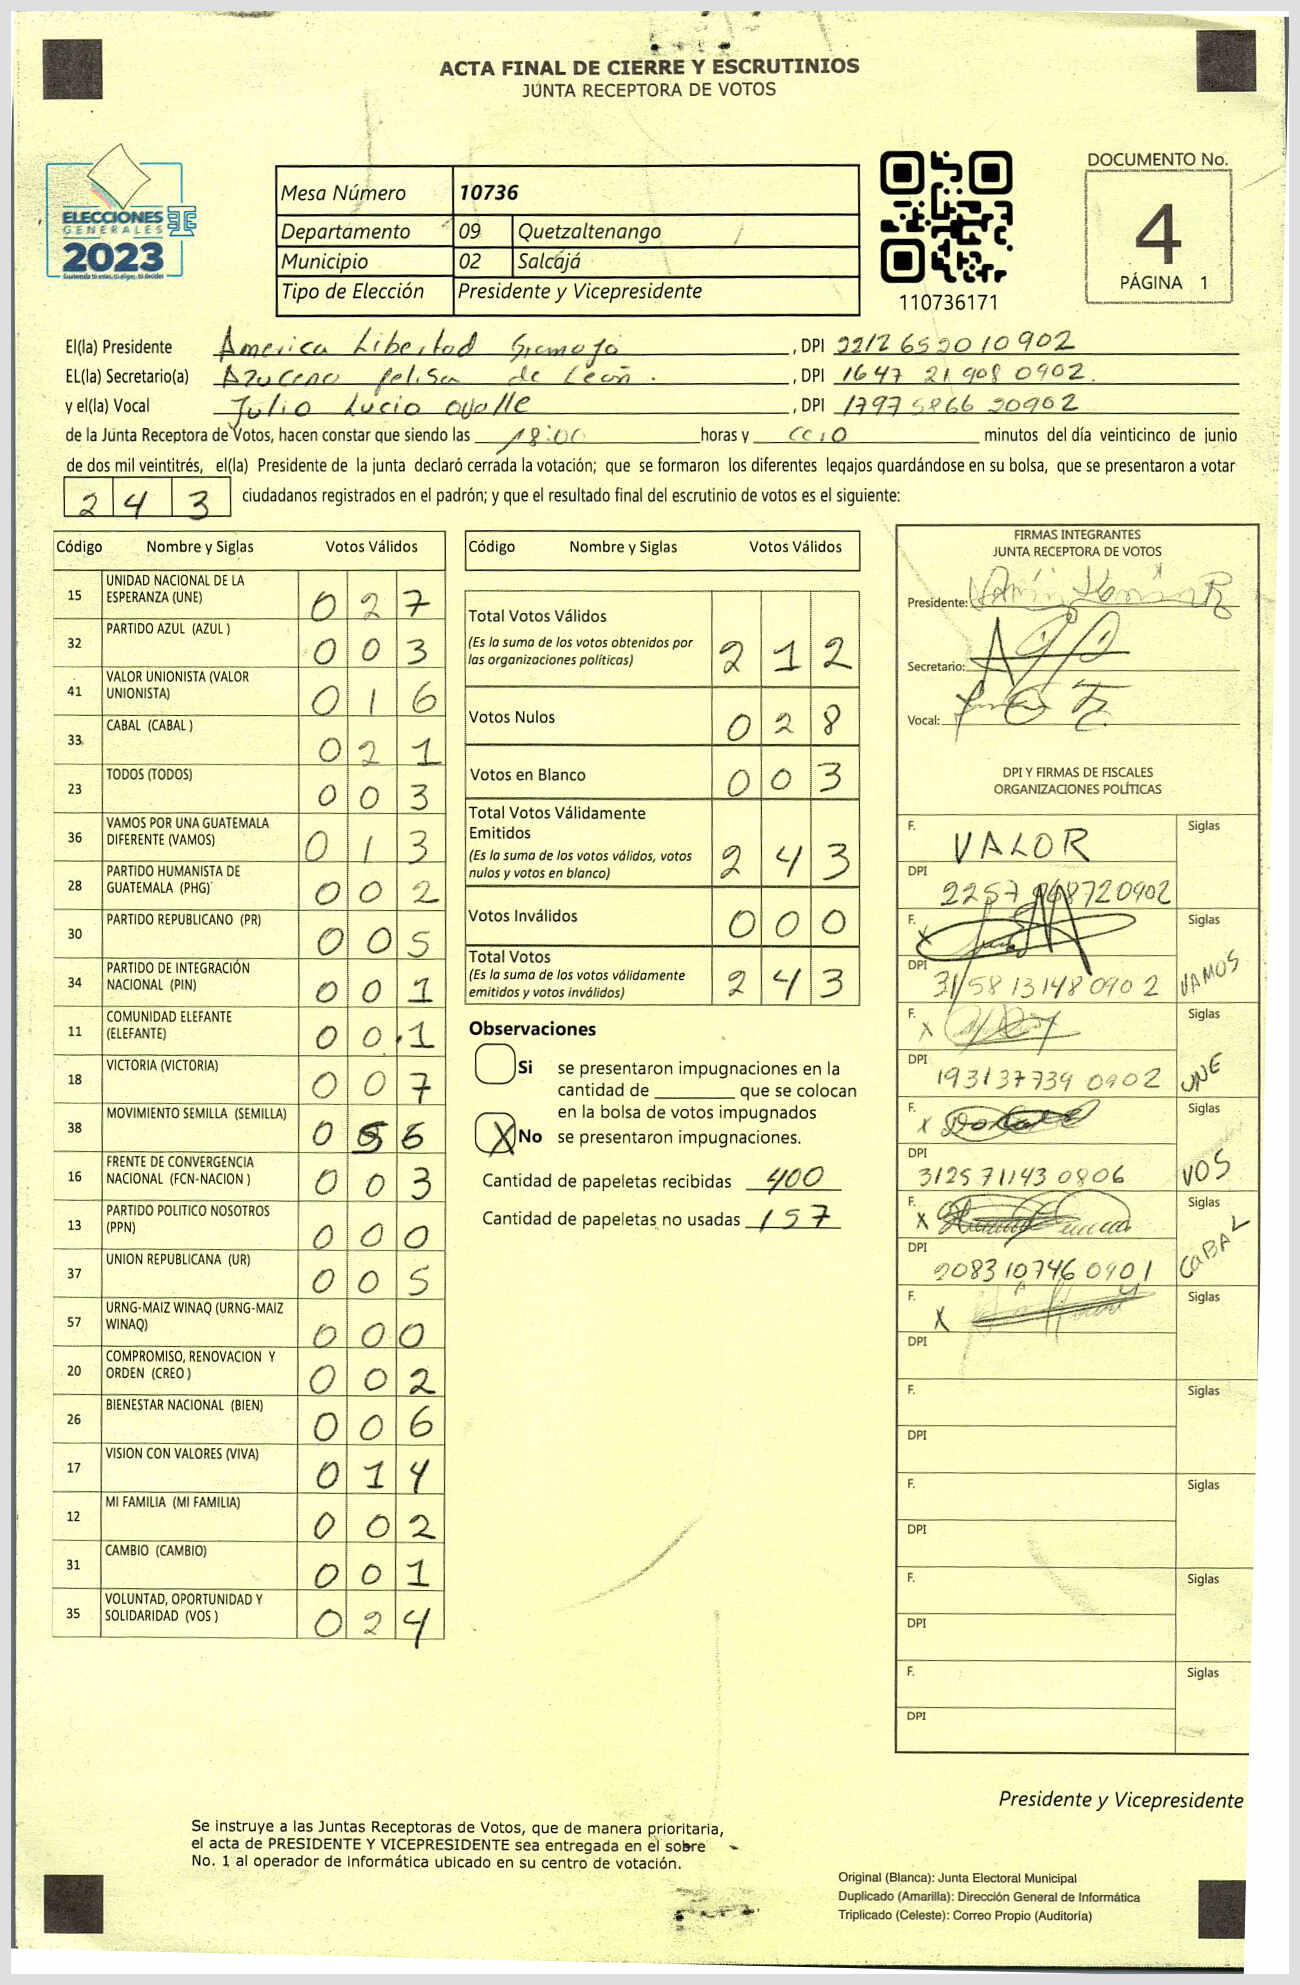 ACTA FINAL DE CIERRE Y ESCRUTINIOS
JUNTA RECEPTORA DE VOTOS
ELECCIONES
GENERALES
2023
Mesa Número 10736
Departamento 09 Quetzaltenango
Municipio 02 Salcajá
Tipo de Elección Presidente y Vicepresidente
110736171
DOCUMENTO No.
4
PÁGINA 1
El(la) Presidente America Libertad , DPI 2212 652010902
EL(la) Secretario(a) Azucena felisa de León. , DPI 1647 21908 0902.
y el(la) Vocal Julio Lucio Ovalle , DPI 1797 5866 20902
de la Junta Receptora de Votos, hacen constar que siendo las 18:00 horas y minutos del día veinticinco de junio
de dos mil veintitrés, el(la) Presidente de la junta declaró cerrada la votación; que se formaron los diferentes legajos guardándose en su bolsa, que se presentaron a votar
2 4 3 ciudadanos registrados en el padrón; y que el resultado final del escrutinio de votos es el siguiente:
Código Nombre y Siglas Votos Válidos
15 UNIDAD NACIONAL DE LA ESPERANZA (UNE) 0 2 7
32 PARTIDO AZUL (AZUL ) 0 0 3
41 VALOR UNIONISTA (VALOR UNIONISTA) 0 1 6
33 CABAL (CABAL ) 0 2 1
23 TODOS (TODOS) 0 0 3
36 VAMOS POR UNA GUATEMALA DIFERENTE (VAMOS) 0 1 3
28 PARTIDO HUMANISTA DE GUATEMALA (PHG) 0 0 2
30 PARTIDO REPUBLICANO (PR) 0 0 5
34 PARTIDO DE INTEGRACIÓN NACIONAL (PIN) 0 0 1
11 COMUNIDAD ELEFANTE (ELEFANTE) 0 0 1
18 VICTORIA (VICTORIA) 0 0 7
38 MOVIMIENTO SEMILLA (SEMILLA) 0 5 6
16 FRENTE DE CONVERGENCIA NACIONAL (FCN-NACION ) 0 0 3
13 PARTIDO POLITICO NOSOTROS (PPN) 0 0 0
37 UNION REPUBLICANA (UR) 0 0 5
57 URNG-MAIZ WINAQ (URNG-MAIZ WINAQ) 0 0 0
20 COMPROMISO, RENOVACION Y ORDEN (CREO ) 0 0 2
26 BIENESTAR NACIONAL (BIEN) 0 0 6
17 VISION CON VALORES (VIVA) 0 1 4
12 MI FAMILIA (MI FAMILIA) 0 0 2
31 CAMBIO (CAMBIO) 0 0 1
35 VOLUNTAD, OPORTUNIDAD Y SOLIDARIDAD (VOS ) 0 2 4
Código Nombre y Siglas Votos Válidos
Total Votos Válidos
(Es la suma de los votos obtenidos por las organizaciones políticas) 2 1 2
Votos Nulos 0 2 8
Votos en Blanco 0 0 3
Total Votos Válidamente Emitidos
(Es la suma de los votos válidos, votos nulos y votos en blanco) 2 4 3
Votos Inválidos 0 0 0
Total Votos
(Es la suma de los votos válidamente emitidos y votos inválidos) 2 4 3
Observaciones
Si se presentaron impugnaciones en la
cantidad de ________ que se colocan
en la bolsa de votos impugnados
X No se presentaron impugnaciones.
Cantidad de papeletas recibidas 400
Cantidad de papeletas no usadas 157
FIRMAS INTEGRANTES
JUNTA RECEPTORA DE VOTOS
Presidente:
Secretario:
Vocal:
DPI Y FIRMAS DE FISCALES
ORGANIZACIONES POLÍTICAS
F. VALOR Siglas
DPI 2257 968720902
F. X Siglas
DPI 3158 13148 0902 VAMOS
F. X Siglas
DPI 193137739 0902 UNE
F. X Siglas
DPI 3125 71143 0806 VOS
F. X Siglas
DPI 208310746 0901 CABAL
F. X Siglas
DPI
F. Siglas
DPI
F. Siglas
DPI
F. Siglas
DPI
F. Siglas
DPI
Presidente y Vicepresidente
Se instruye a las Juntas Receptoras de Votos, que de manera prioritaria,
el acta de PRESIDENTE Y VICEPRESIDENTE sea entregada en el sobre
No. 1 al operador de informática ubicado en su centro de votación.
Original (Blanca): Junta Electoral Municipal
Duplicado (Amarilla): Dirección General de Informática
Triplicado (Celeste): Correo Propio (Auditoría)